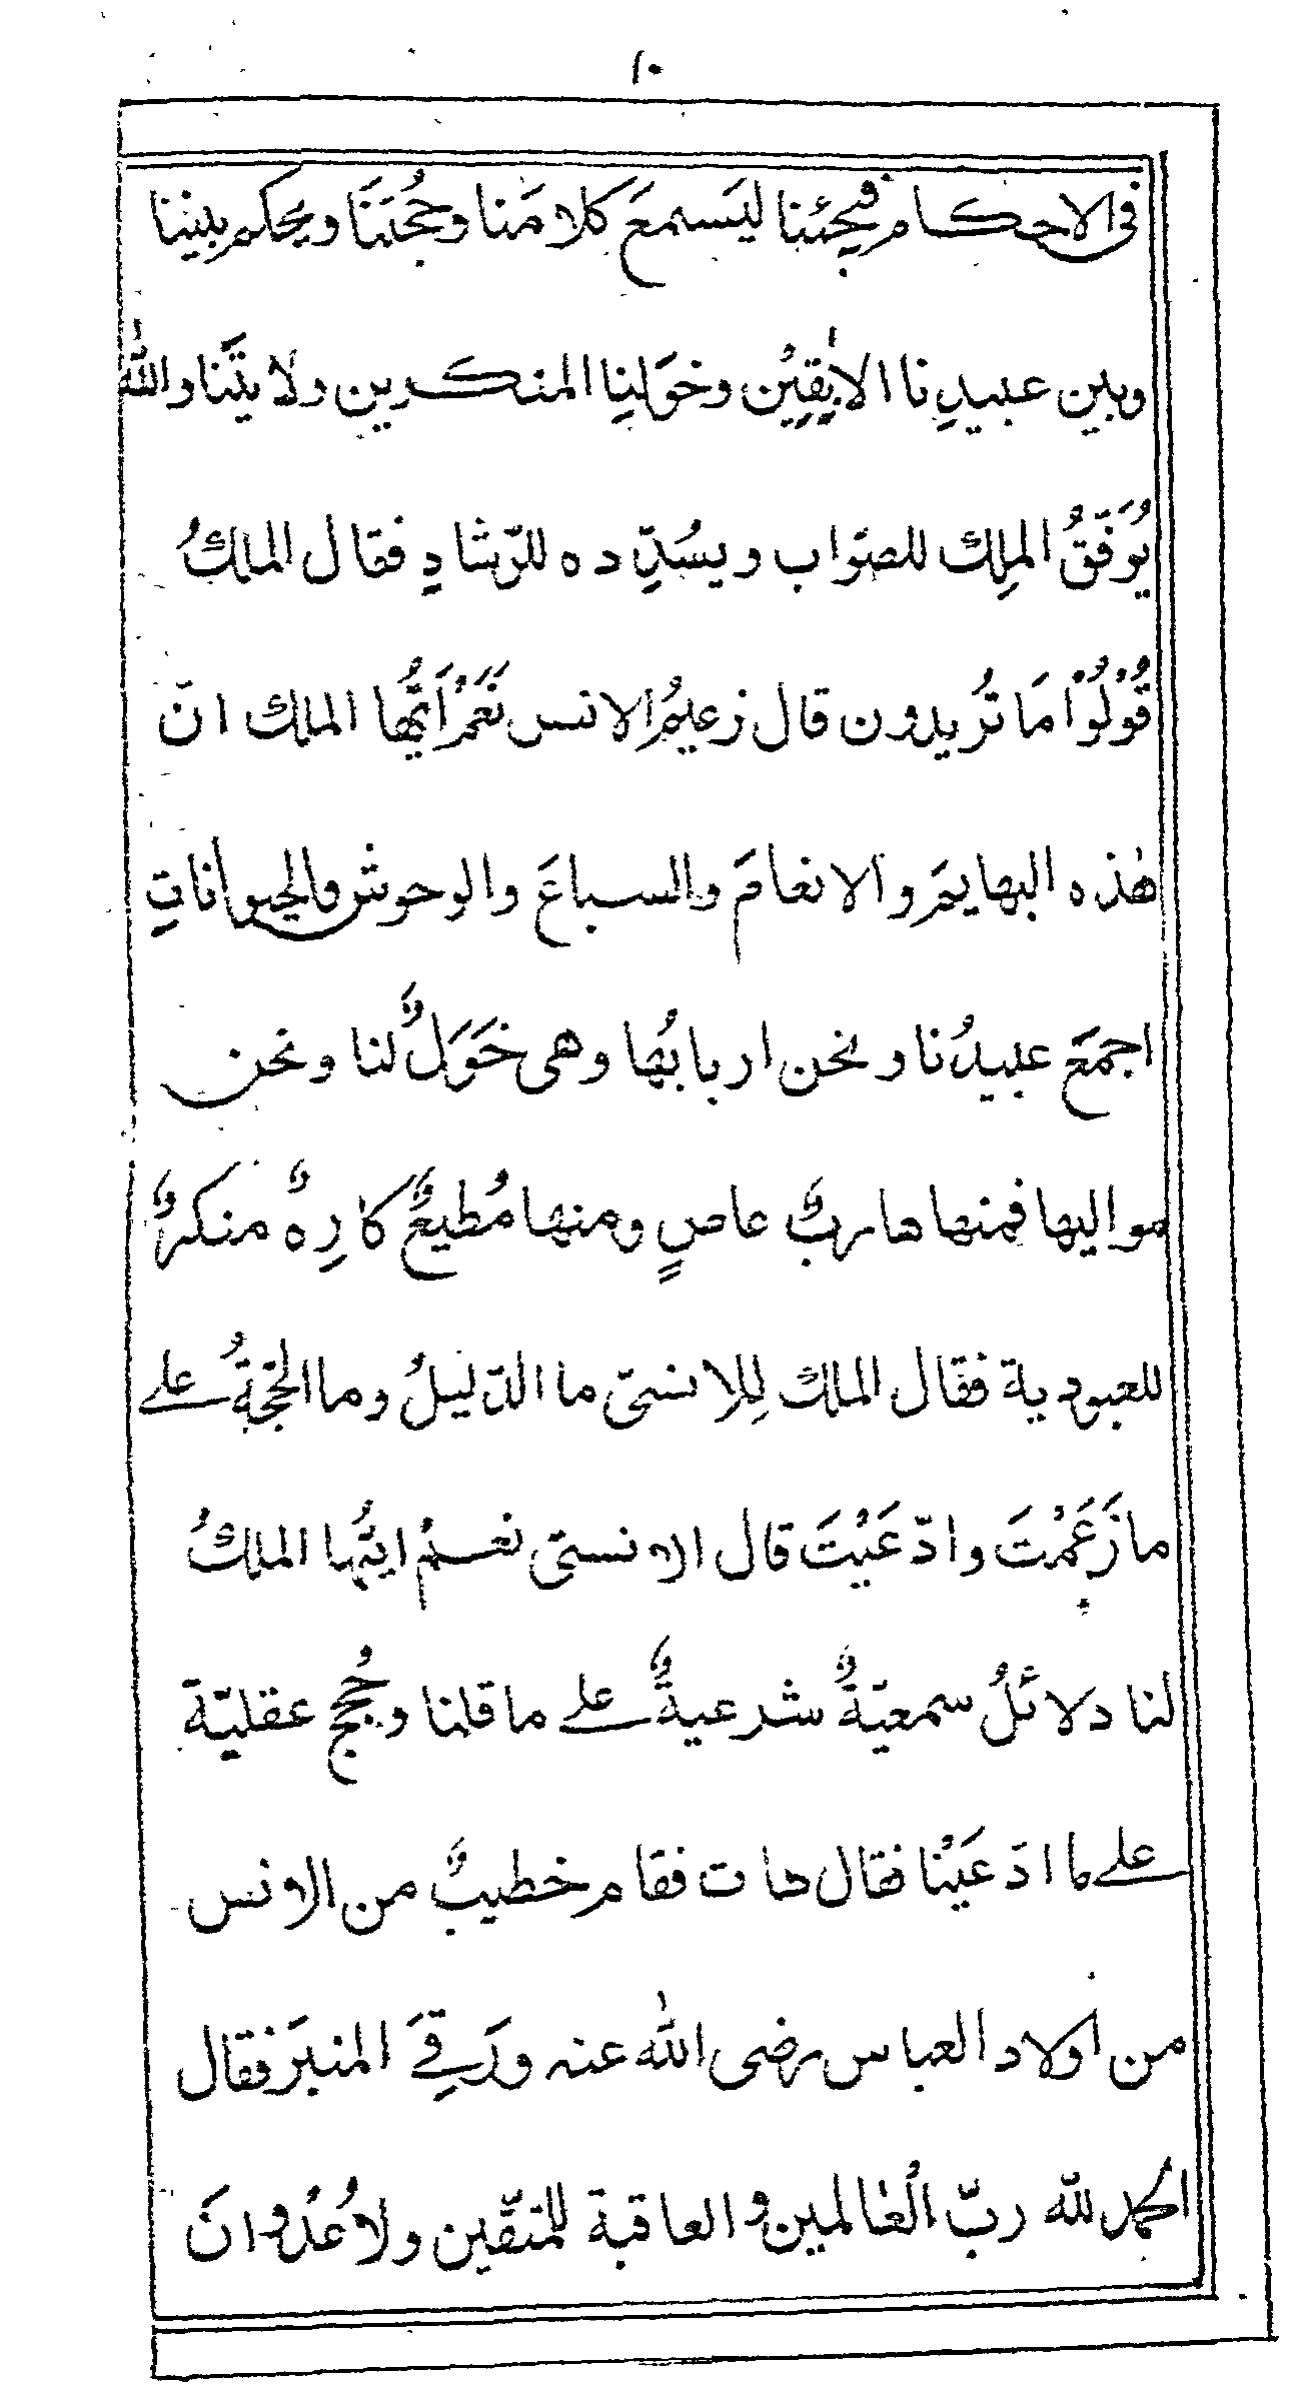 ١٠
فى الاحكام فجِئنا ليَسمعَ كلامَنا وحُجتَنَا ويحكم بيننا
وبين عبيدِنا الاٰبِقِيْن وخوَلِنِا المنكرين ولايتَنا واللّٰه
يُوَفّقُ الملِك للصّوَاب ويسُدِّده للرّشادِ فقال الملكُ
قُوْلُوْا مَا تُريدون قال زعيمُ الانس نَعَمْ اَيُّها الملك انّ
هٰذه البهايمَ والانعامَ والسباعَ والوحوش والحيواناتِ
اجمعَ عبيدُنا ونحن اربابُها وهى خَوَلٌ لنا ونحن
مواليها فمنها هاربٌ عاصٍ ومنها مُطيعٌ كارِهٌ منكرٌ
للعبودية فقال الملك لِلانسىّ ما الدّليلُ وما الحجّةُ علے
ما زَعَمْتَ وادّعَيْتَ قال الانسىّ نعمْ ايُّها الملكُ
لنا دلائلُ سمعيّةٌ شرعيةٌ علے ما قلنا وحُجج عقليّة
علے ما ادّعَيْنا فقال هات فقام خطيبٌ من الانس
من اولاد العباس رضى اللّٰه عنه ورَقِےَ المنبرَ فقال
الحمد للّه ربّ الْعٰالمين والعاقبة للمتّقين ولا عُدْوانَ